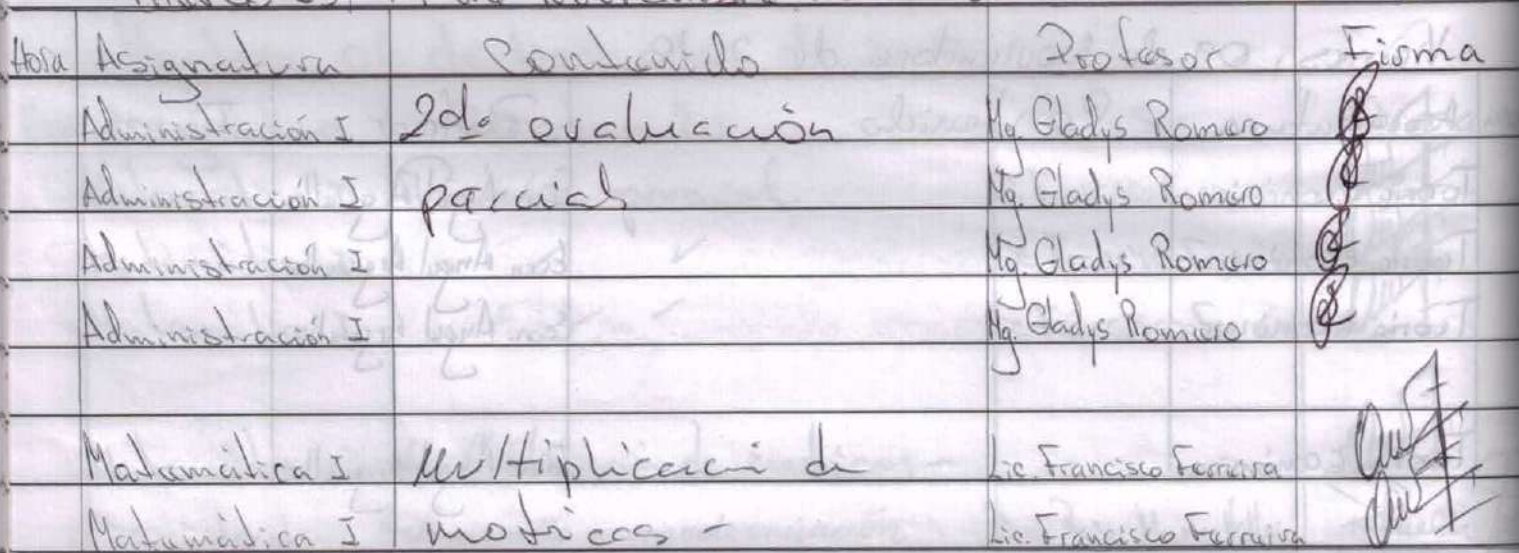 Hora Asignatura Contenido Profesor Firma
Administración I 2da evaluación Mg. Gladys Romero
Administración I parcial Mg. Gladys Romero
Administración I Mg. Gladys Romero
Administración I Mg. Gladys Romero
Matemática I Multiplicaci de Lic. Francisco Ferreira
Matemática I matrices - Lic. Francisco Ferreira